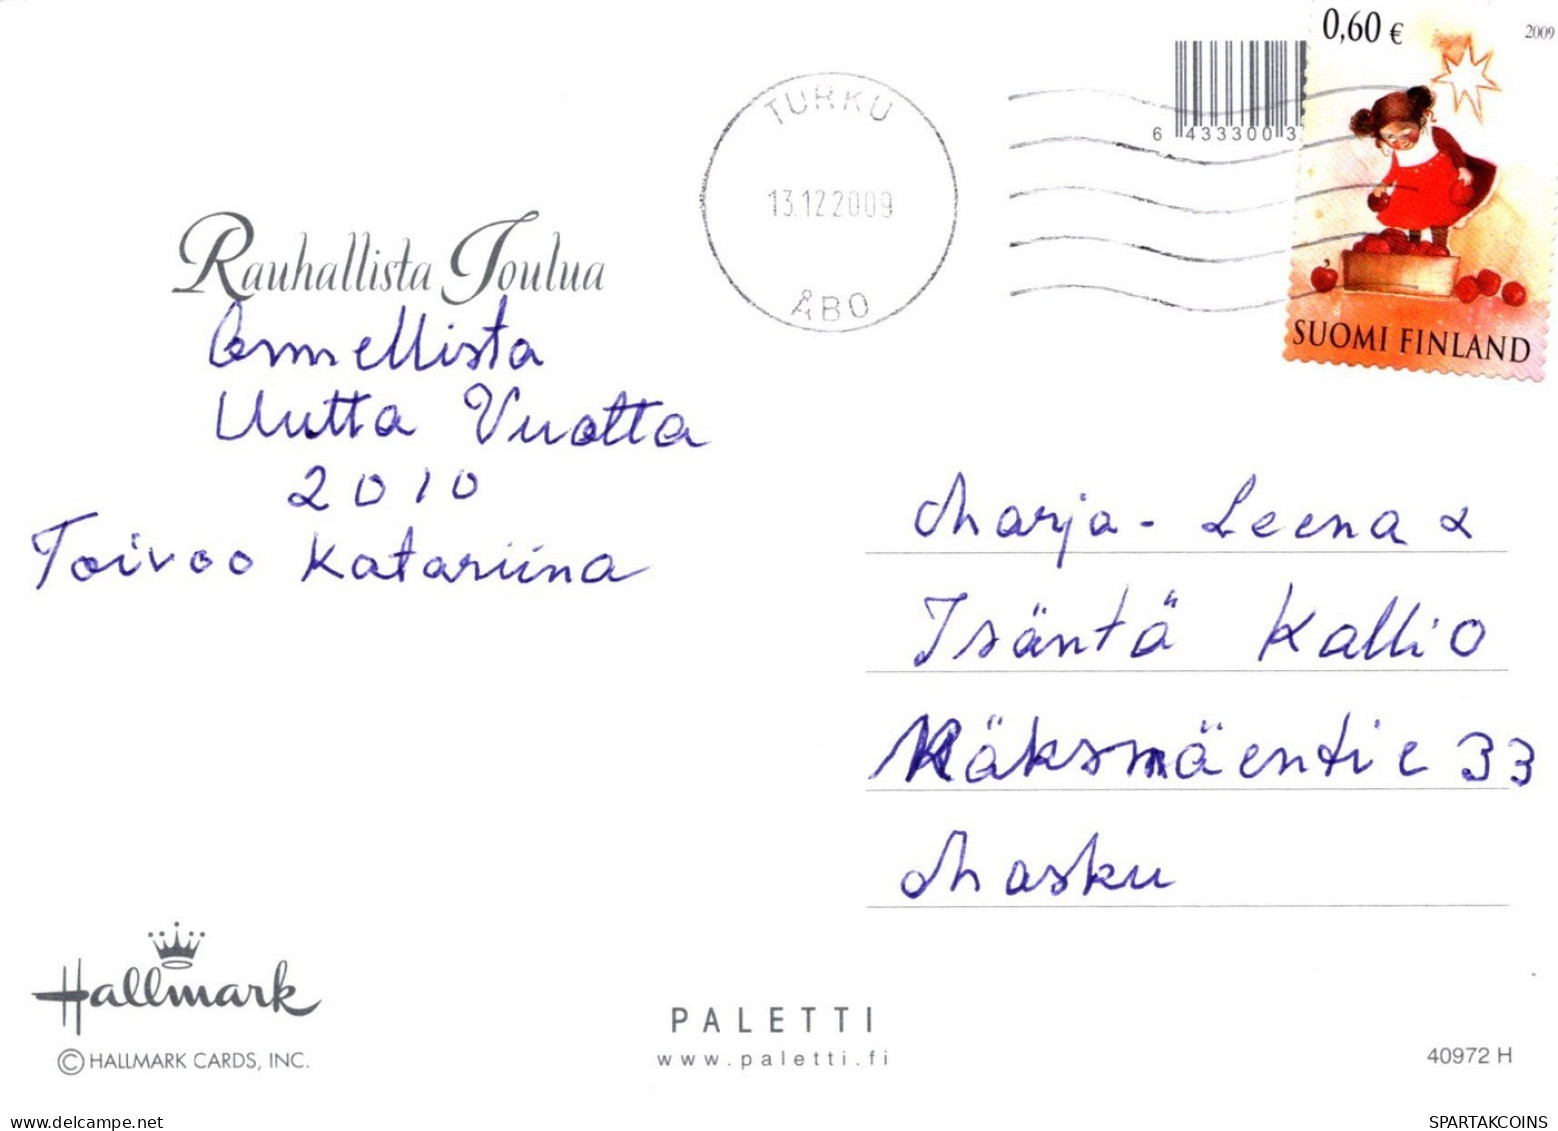 0,60 €
2009
6 433300 3
TURKU
13.12.2009
ÅBO
SUOMI FINLAND
Rauhallista Joulua
Onnellista
Uutta Vuotta
2010
Toivoo Katariina
Marja-Leena &
Isäntä Kallio
Käksmäentie 33
Masku
Hallmark
© HALLMARK CARDS, INC.
PALETTI
www.paletti.fi
40972 H
https://www.delcampe.net
SPARTAKCOINS